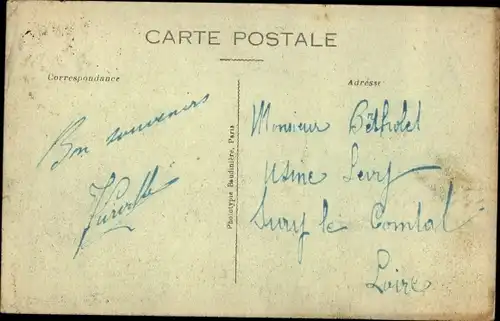 CARTE POSTALE
Correspondance
Adresse
Bon souvenirs
Phototypie Baudinière, Paris
Monsieur Bétholet
Usine Levy
Sury le Comtal
Loire